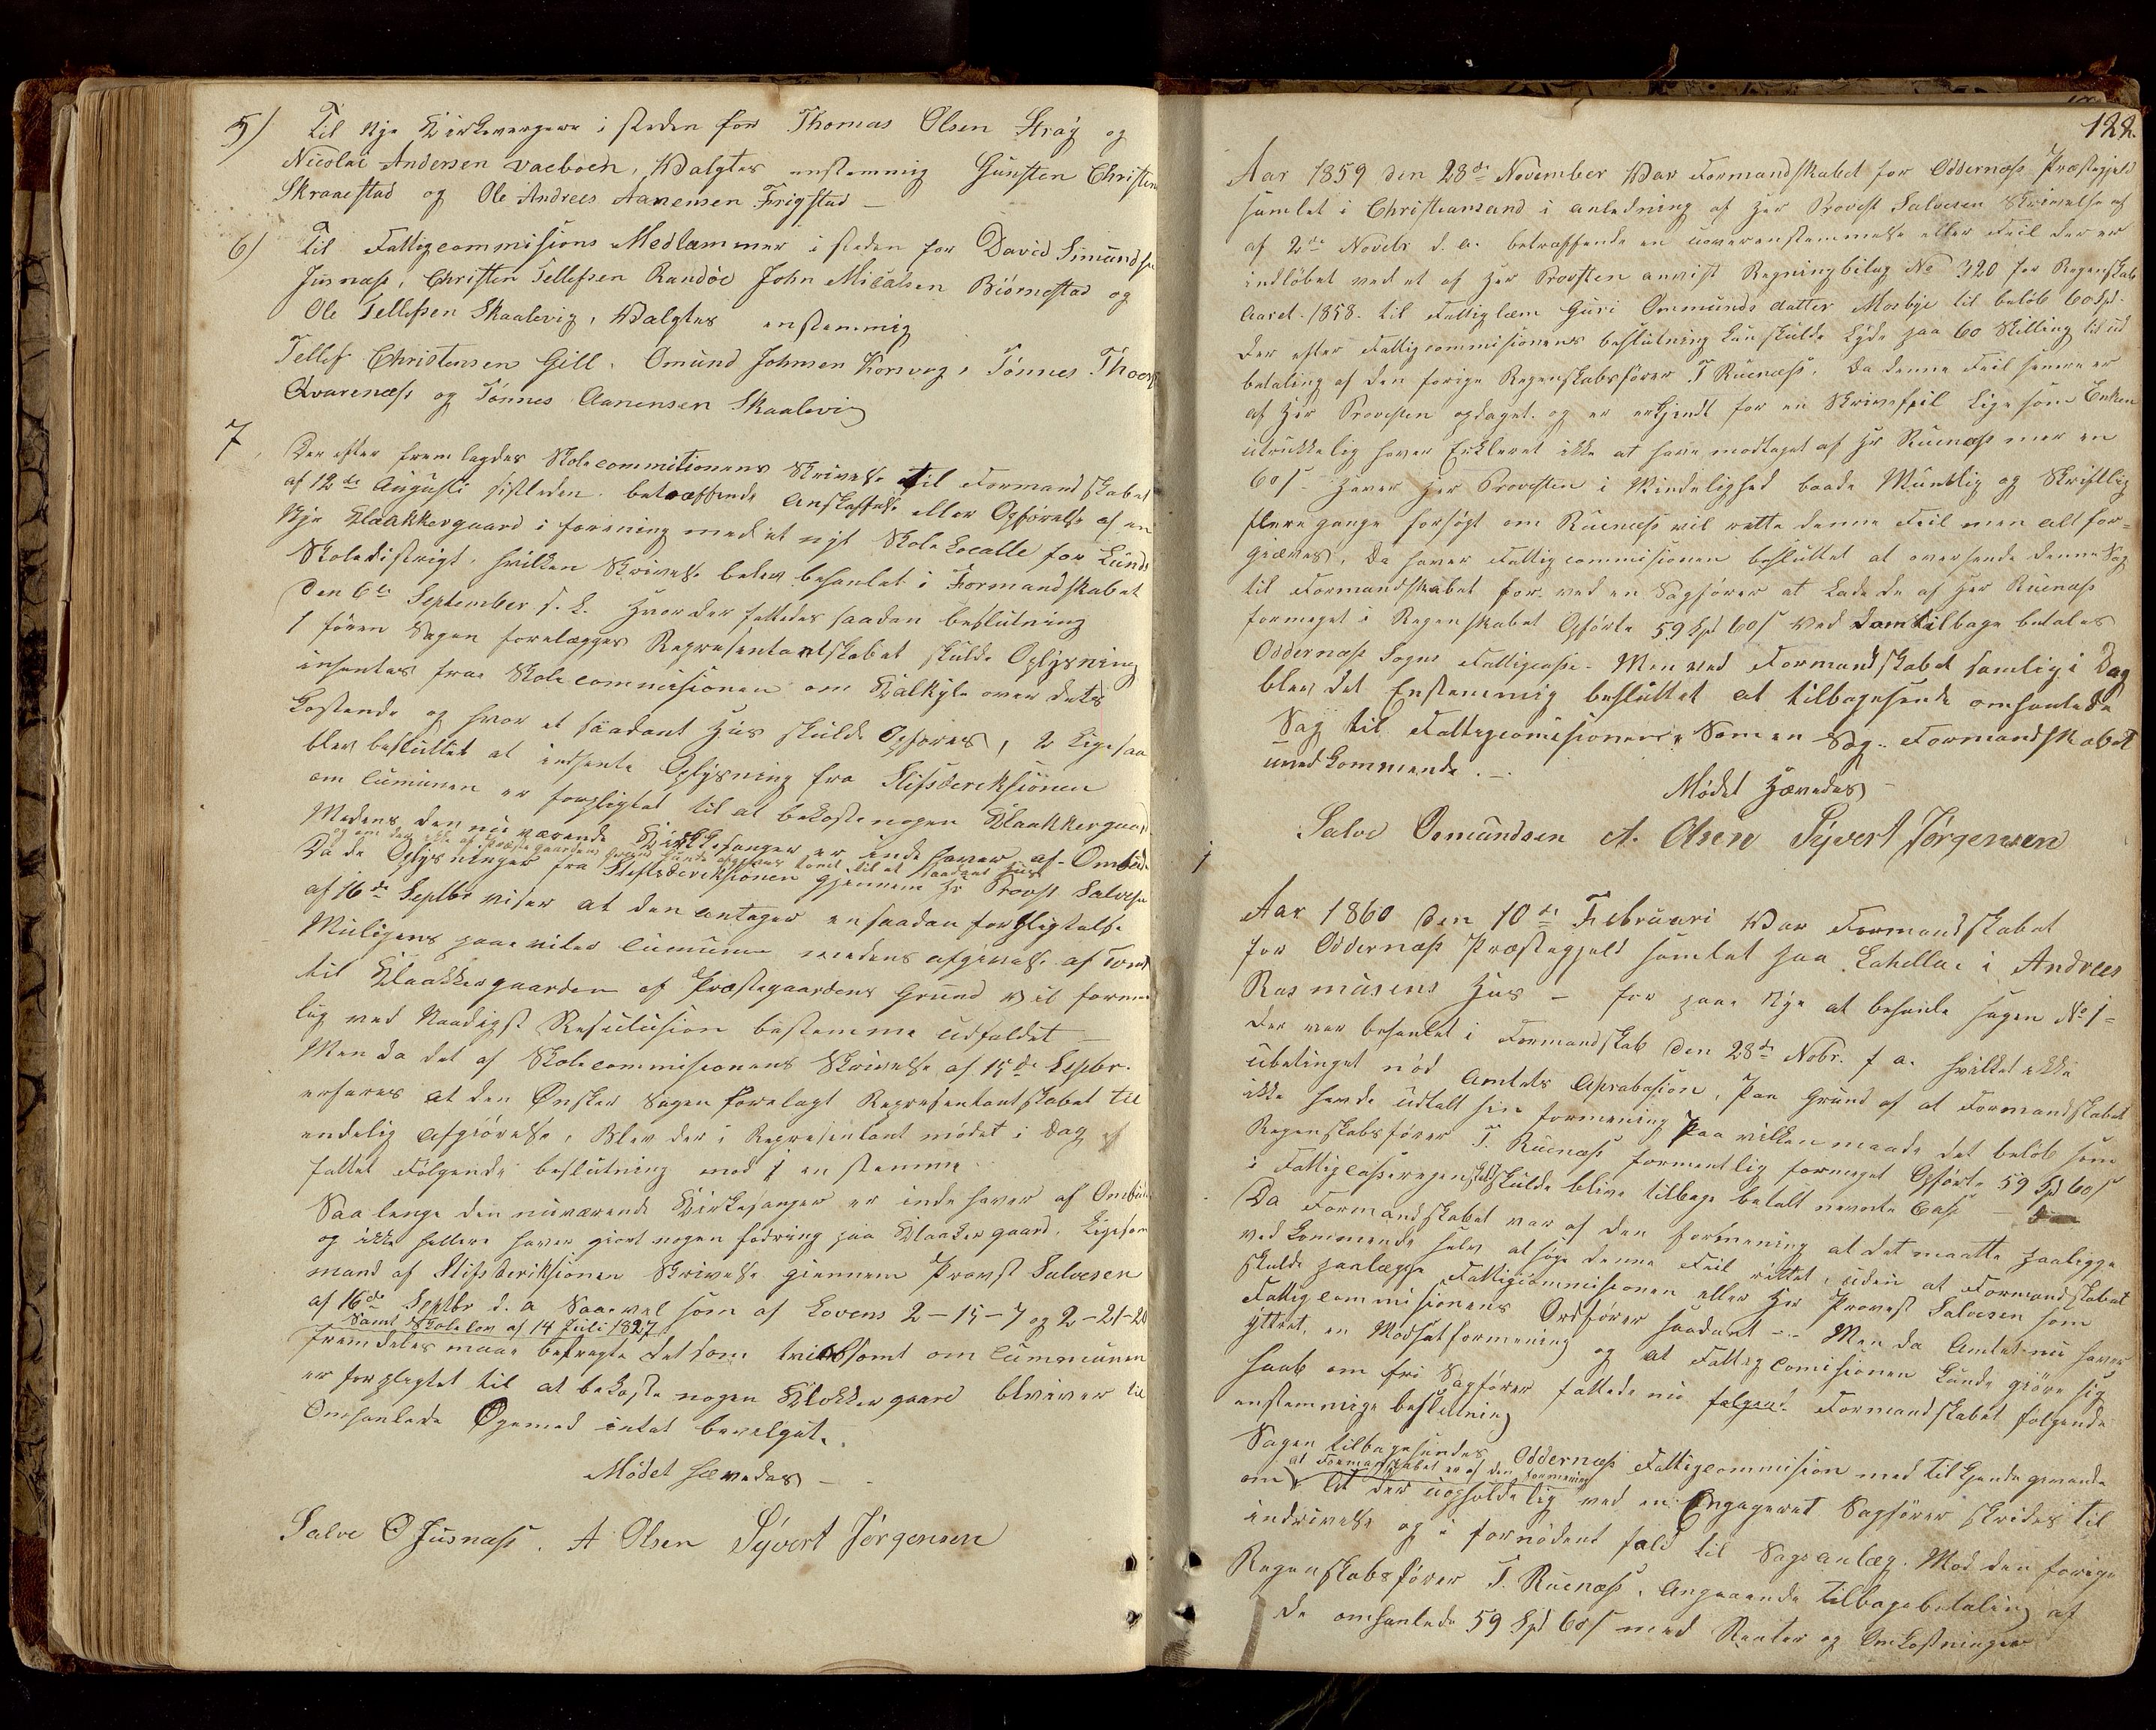 5) Til Nye Kirkevergere i steden for Thomas Olsen Straÿ og
Nicolai Andersen Vaeboen, Valgtes enstemmig Gunsten Christen
Skraaestad og Ole Andreas Aanensen Frigstad –
6) Til Fattigcommisions Medlammer i steden for David Simundsen
Jusnæss, Christen Tellefsen Randöe John Micalsen Biörnestad og
Ole Tellefsen Skaalevig, Valgtes enstemmig
Tellef Christensen Gill, Omund Johnsen Korsvig, Tönnes Thors
Qvarenæss og Tönnes Aanensen Skaalevig
7, Der efter fremlagdes Skolecommitionens Skrivelse til Formandskabet
af 12de Augusti sistleden betræffende Anskaffelse eller Opförelse af en
Nye Klaakkergaard i forening med et nyt Skole Localle for Lunds
Skoledistrigt, hvilken Skrivelse belev behanlet i Formandskabet
den 6te September d. A. Hvor der fattedes saadan beslutning
1 förren Sagen forelægges Representantskabet skulde Oplysning
insentes fraa Skolecommisionen om Kalkyle over dets
Kostende og hvor et saadant Hus skulde Opföres, 2 Ligesaa
blev besluttet at indhente Oplysning fra Stifsdereksionen
om Cumunen er forpligtet til at bekoste nogen Klaakkergaard
Medens den nu værende Kirkesanger er inde haver af Ombudet
og om der ikke af Præstegaardens Grund kunde afgives Tomt til et saadant Hus
Da de Oplysninger fra Stiftsdereksionen gjennem Hr Provst Salvesen
af 16de Septbr viser at den antager en saadan forpligtelse
Muligens paaviler Cumunen medens afgivelse af Tomt
til Klaakkergaarden af Præstegaardens Grund vil formo
lig ved Naadigst Resulusion bestemme Udfaldet –
Men da det af Skolecommisionens Skrivelse af 15de Sepbr.
erfares at den Önsker Sagen forelagt Representantskabet til
endelig Afgiörelse, Blev der i Representantmödet i Dag
fattet Fölgende beslutning mod 1 en stemme
Saa lenge den nuværende Kirkesanger er inde haver af Ombudet
og ikke hellere haver giort nogen fodring paa Klaakergaard, Ligesom
mand af Stifsderiksionen Skrivelse giennem Provst Salvesen
af 16de Septbr d. a Saavel som af Lovens 2–15–7 og 2–21–20
Samt Skolelov af 14 Juli 1827
fremdeles maae betragte det som tvivlsomt om Cummunen
er forplegtet til at bekoste nogen Klokkergaard bliver til
Omhanlede Öyemed intet bevelget.
Mödet hævedes –
Salve O Jusnæss. A Olsen Syvert Jörgensen
122.
Aar 1859 den 28de November Var Formandskabet for Oddernæss Præstegjeld
samlet i Christiansand i anledning af Her Provst Salvesen Skrivelse af
af 2de Novebr. d. a. betræffende en uoverenstemmelse eller Feil der er
indlöbet ved et af Her Provsten anvist Regningbilag No 320 for Regenskab
Aaret 1858 til Fattiglem Guri Ommunds datter Mosbye til belöb 60 Spd.
der efter Fattigcommisionens beslutning kun skulde Lyde paa 60 Skilling til ud
betaling af den forige Regenskabsförer T Ruenæss. Da denne Feil senere er
af Her Provsten opdaget og er erkjendt for en Skrivefeil Lige som Enken
udrukkelig haver Erkleret ikke at have modtaget af Hr Ruenæss mer en
60 s – Haver Her Provsten i Mindelighed baade Muntlig og Skriftlig
flere gange forsögt om Ruenæss vil rette denne Feil men alt for=
gieves. Da haver Fattigcommisionen besluttet at oversende denne Sag
til Formandskabet for ved en Sagförer at Lade de af Her Ruenæss
formeget i Regenskabet Opförte 59 Spd 60 s Ved Dom tilbage betales
Oddernæss Sogns Fattigcasse. – Men ved Formandskabet samlig i Dag
blev det Enstemmig besluttet at tilbagesende omhanlede
Sag til Fattigcomisionen, Som en Sag Formandskabet
uvedkommende. –
Mödet Hævedes –
Salve Osmundsen A. Olsen Syvert Jörgensen
1
Aar 1860 den 10de Februari Var Formandskabet
for Oddernæss Præstegjeld samlet paa Lahellae i Andreas
Rasmusens Hus – for paae Nye at behanle Sagen No 1 =
der var behanlet i Formandskab den 28de Nobr. f. a. hvilket ikke
ubetinget nöd Amtets Aprobasion, Paa Grund af at Formandskabet
ikke havde udtalt sin formening Paa vilken maade det belöb som
Regenskabsförer T Ruenæss formentlig formeget Opförte 59 Spd 60 s
i Fattigcasseregenskabet skulde blive tilbage betalt nevnte Cass –
Da Formandskabet var af den formening at det maatte paaligge
vedkommende selv at söge denne Feil rettet, uden at Formandskabet
skulde paalægge Fattigcommisionen eller Hr Provst Salvesen som
Fattigcommisionens Ordförer saadant –.– Men da Amtet nu haver
yttret, en Modsatformening og at Fattigcomisionen kunde giöre sig
haab om fri Sagförer fattede nu Formandskabet fölgende
enstemmige beslutning
Sagen tilbagesendes Oddernæss Fattigcommision med tilkjendegivende
at Formanskabet er af den formening
om At der uopholdelig ved en Engageret Sagförer skrides til
indrivelse og i fornödent fald til Sags anlæg. Mod den forige
Regenskabsförer T. Ruenæss, Angaaende Tilbagebetaling af
de omhanlede 59 Spd 60 s med Renter og Omkostninger